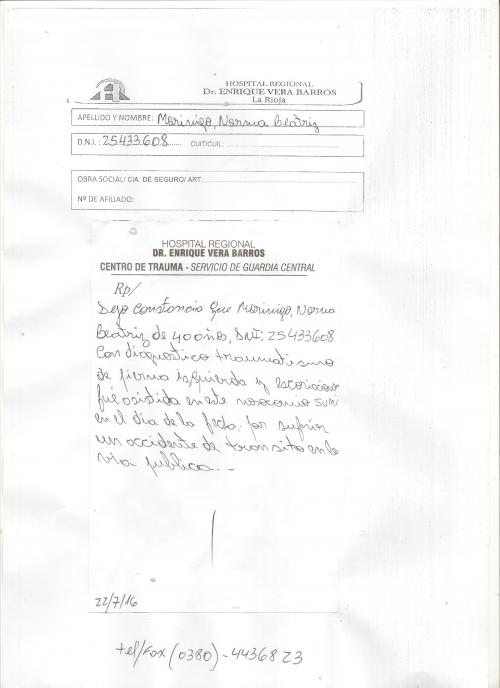 HOSPITAL REGIONAL
Dr. ENRIQUE VERA BARROS
La Rioja
APELLIDO Y NOMBRE: Morinigo, Norma Beatriz
D.N.I. : 25433608 CUIT/CUIL:
OBRA SOCIAL/ CIA. DE SEGURO/ ART
Nº DE AFILIADO:
HOSPITAL REGIONAL
DR. ENRIQUE VERA BARROS
CENTRO DE TRAUMA - SERVICIO DE GUARDIA CENTRAL
Rp/
Dejo Constancia que Morinigo, Norma
Beatriz de 40 años, DNI: 25433608
Con diagnostico traumatismo
de pierna izquierda y escoriaciones
fue asistida en este nosocomio
en el dia de la fecha. por sufrir
un accidente de transito en la
via publica.-
22/7/16
tel/Fax (0380) - 4436823